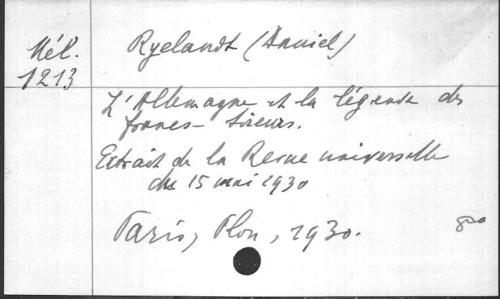 Mél.
1213
Ryelandt (Daniel)
L'Allemagne et la légende des
francs-tireurs.
Extrait de la Revue universelle
du 15 mai 1930
Paris, Plon, 1930.
8°